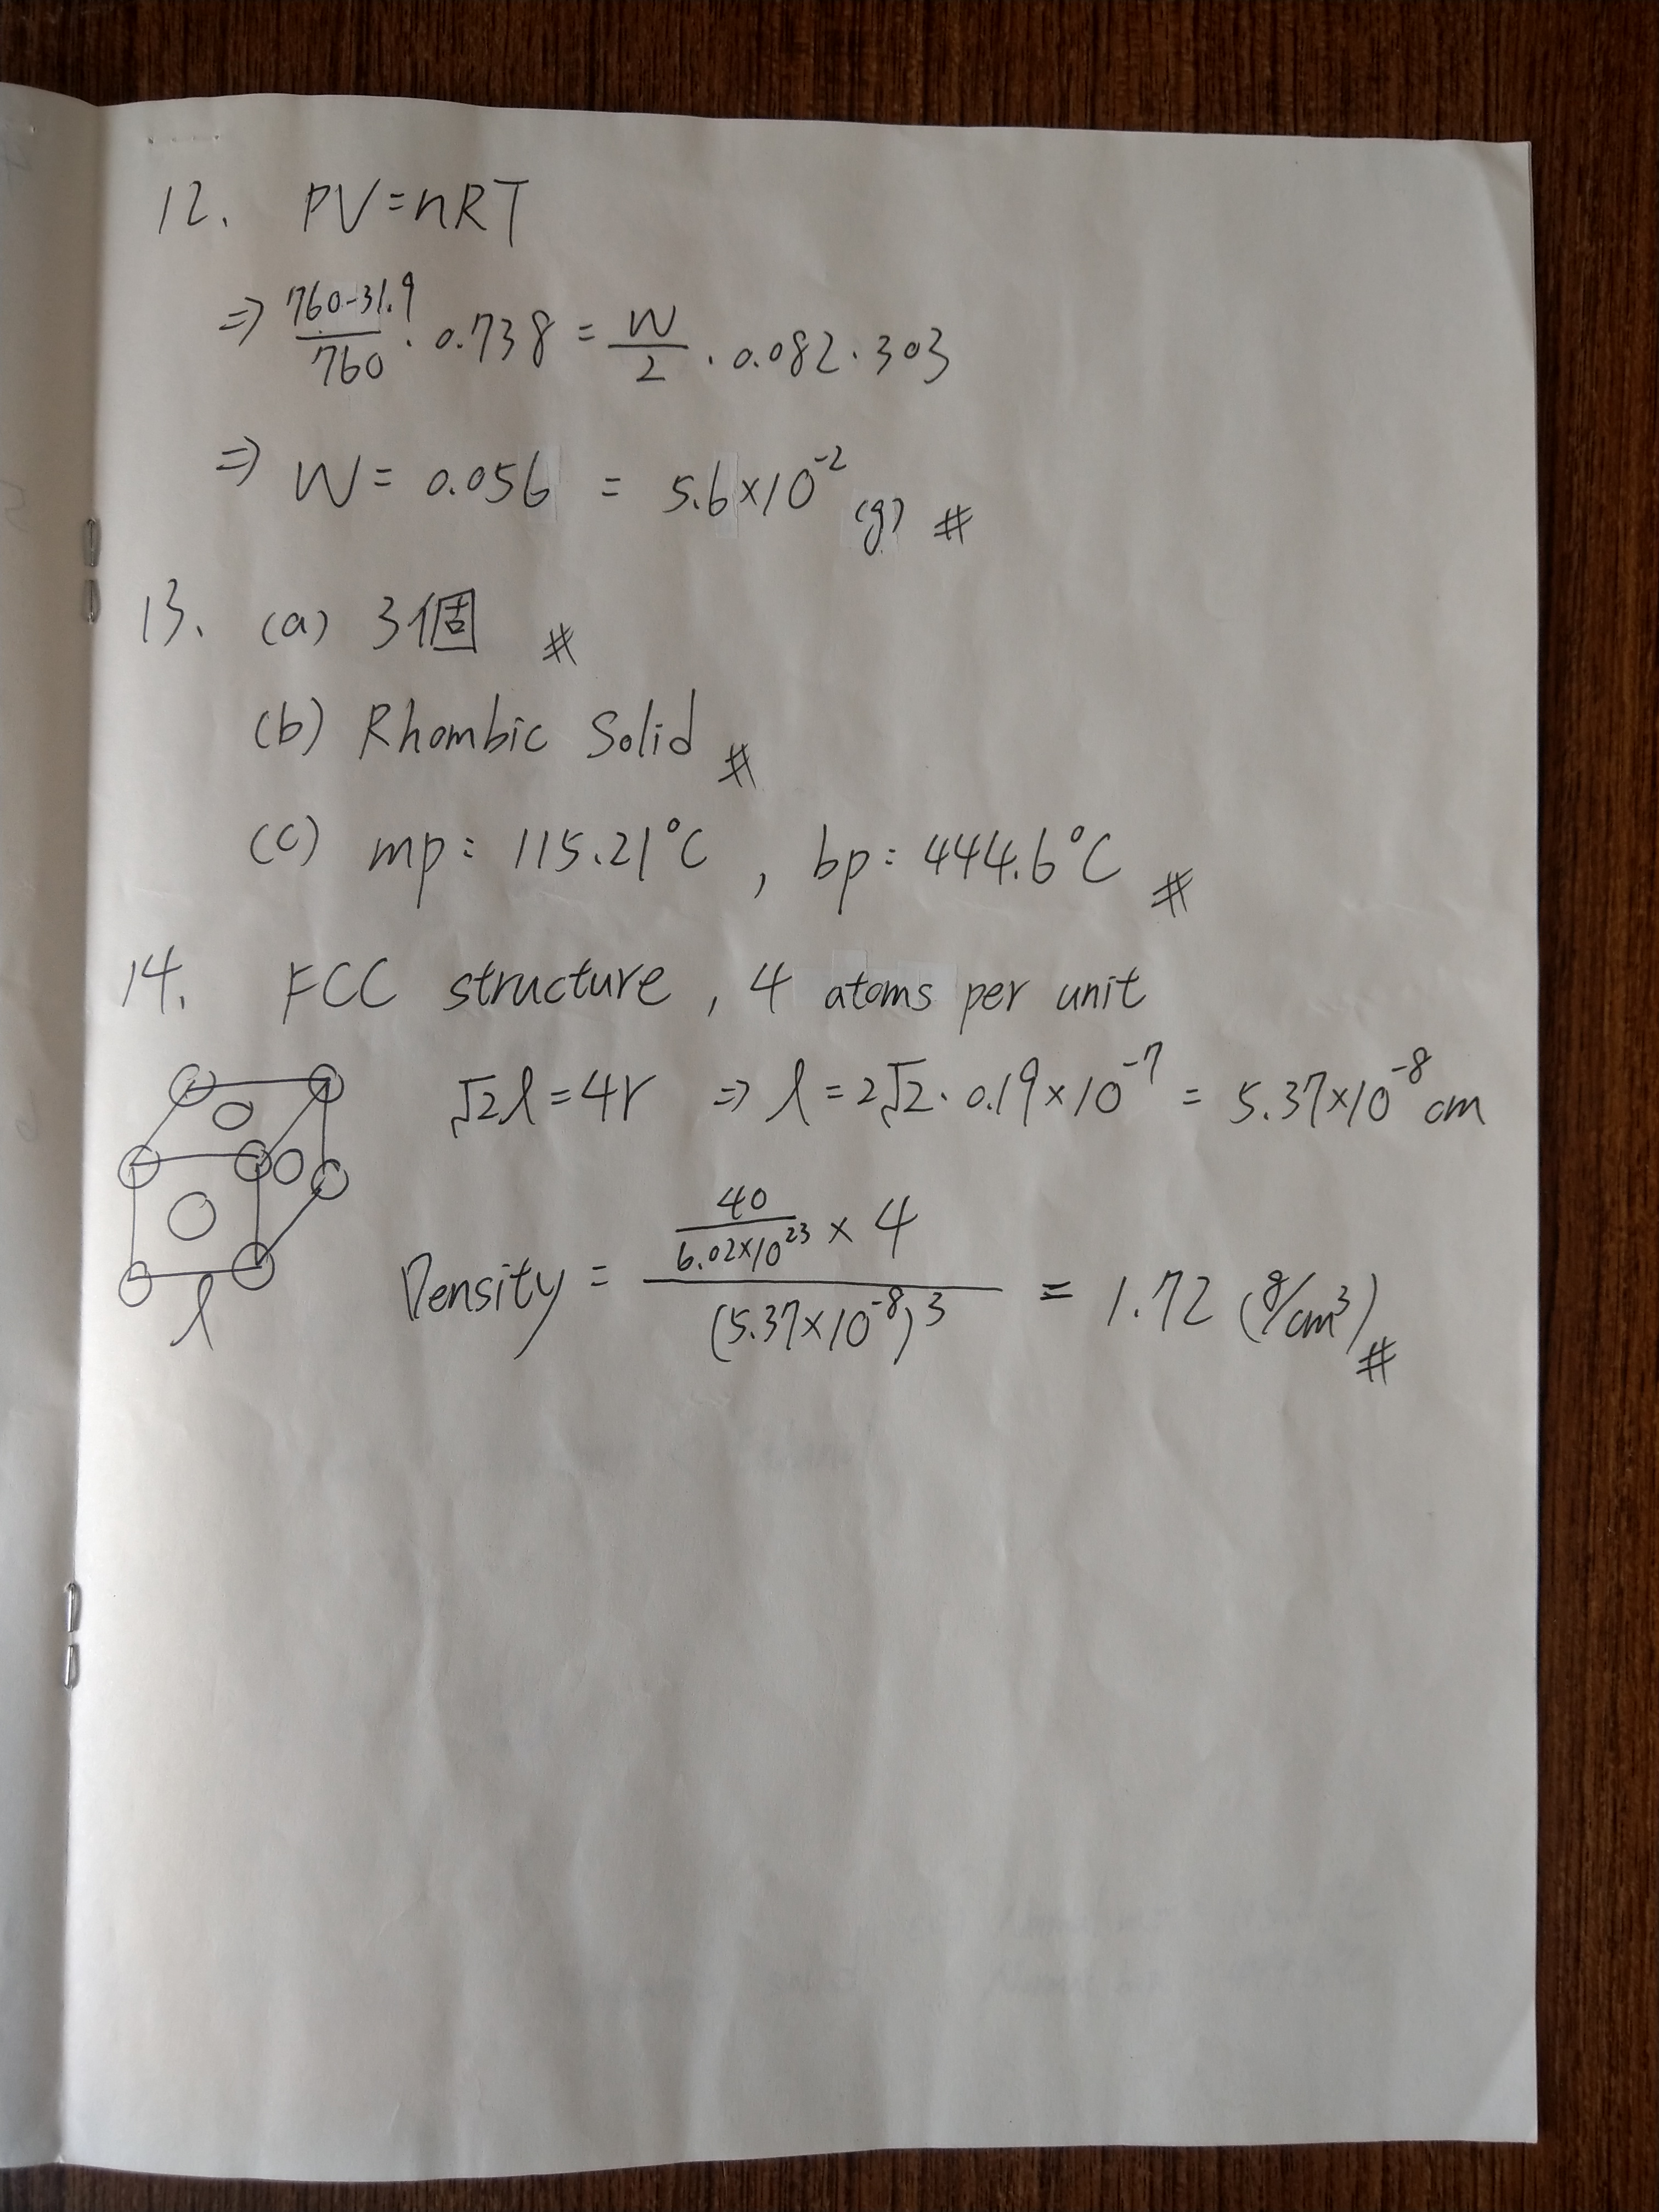 12. PV=nRT
⇒ (760-31.9)/760 · 0.738 = W/2 · 0.082 · 303
⇒ W = 0.056 = 5.6×10^-2 (g) #
13. (a) 3個 #
(b) Rhombic Solid #
(c) mp: 115.21°C , bp: 444.6°C #
14. FCC structure , 4 atoms per unit
√2 l = 4r ⇒ l = 2√2 · 0.19×10^-7 = 5.37×10^-8 cm
Density = (40/(6.02×10^23) × 4)/(5.37×10^-8)^3 = 1.72 (g/cm^3) #
l